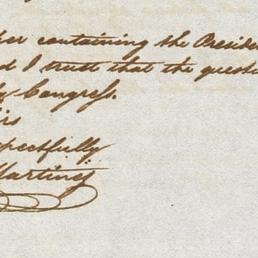 per containing the Preside
d I trust that the questi
by Congress.
irs
pectfully
Martinez